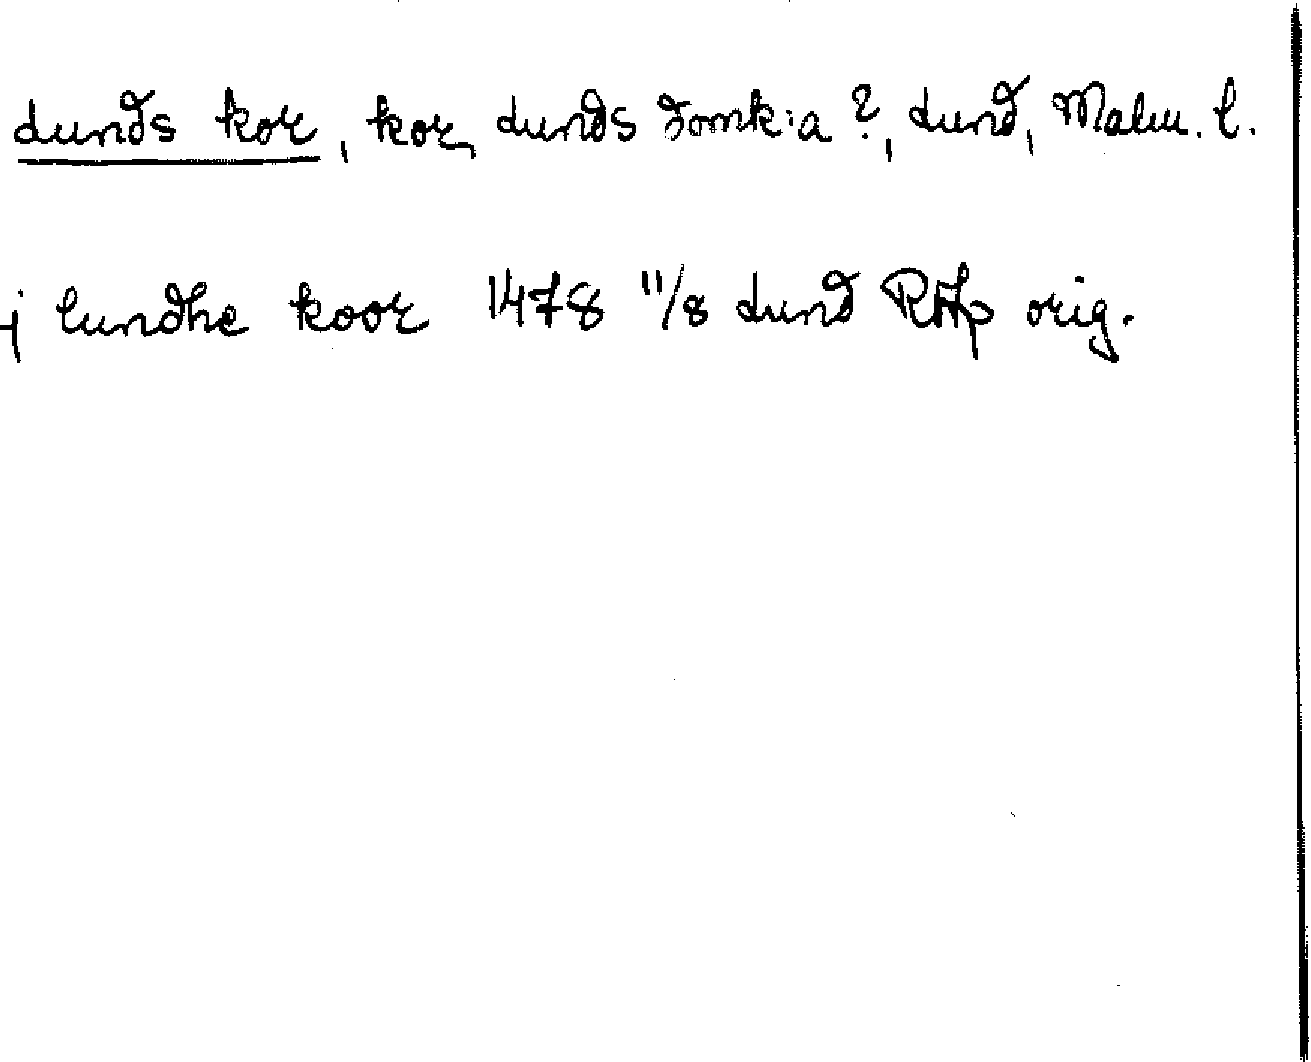 Lunds kor, kor, Lunds domk:a ?, Lund, Malm. l.
j lundhe koor 1478 11/8 Lund RAp orig.